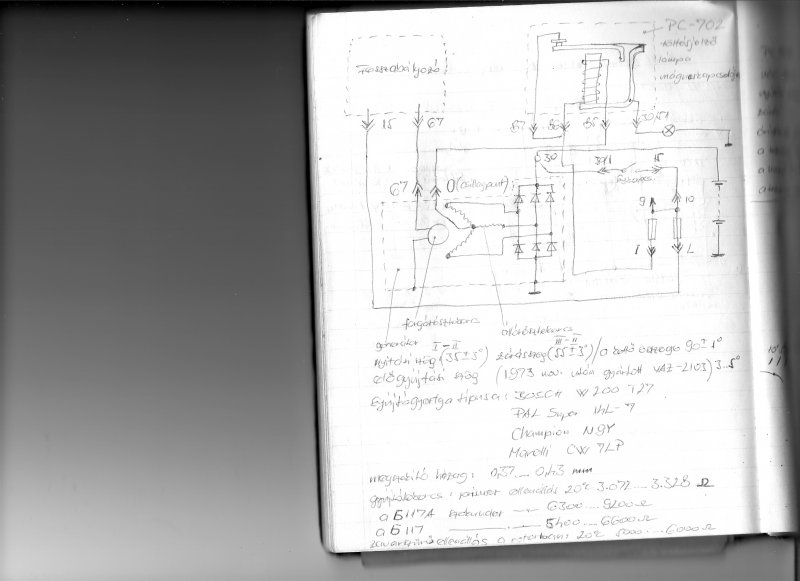 PC-702
töltésjelző
lámpa
mágneskapcsolója
Feszszabályozó
15 67
87 86 85 30/51
67 0 (csillagpont)
30 30/1 15
9 10
1 7
forgórésztekercs
állórésztekercs
generátor
I-II III-II
nyitási szög (35±3°) zárásszög (55±3°)/a kettő összege 90±1°
előgyújtási szög (1973 nov. után gyártott VAZ-2103) 3..5°
Gyújtógyertya típusa: BOSCH W200 T27
PAL Super 14L-7
Champion N9Y
Marelli CW 7LP
megszakító hézag: 0,37...0,43 mm
gyújtótekercs: primer ellenállás 20°C 3.072...3.328 Ω
a Б117A szekunder 6300...9200Ω
a Б117 5400...6600Ω
zavarszűrő ellenállás a rotorban: 20°C 5000...6000Ω